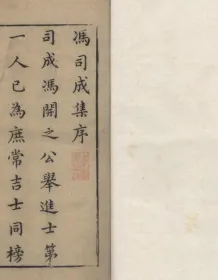 馮司成集序
司成馮開之公舉進士第
一人已為庶常吉士同榜